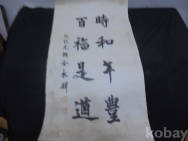 時和年豐
百福是遒
kobay